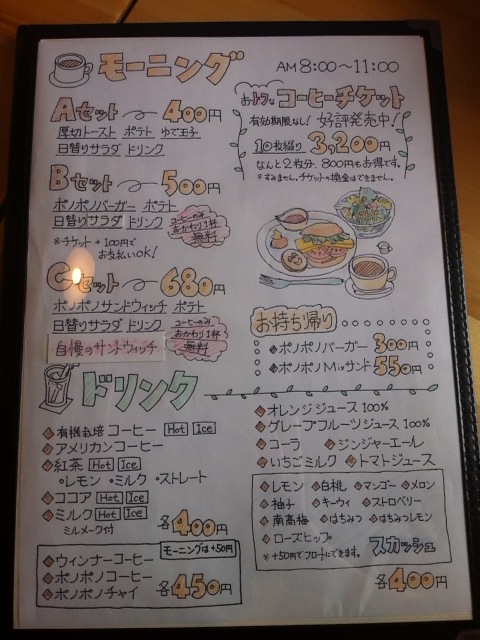 モーニング AM 8:00～11:00
Aセット 400円
厚切トースト ポテト ゆで玉子
日替りサラダ ドリンク
Bセット 500円
ポノポノバーガー ポテト
日替りサラダ ドリンク
コーヒーのみ
おかわり1杯
無料
※チケット＋100円で
お支払いOK!
Cセット 680円
ポノポノサンドウィッチ ポテト
日替りサラダ ドリンク
コーヒーのみ
おかわり1杯
無料
自慢のサンドウィッチ
おトクなコーヒーチケット
有効期限なし! 好評発売中!
10枚綴り 3,200円
なんと2枚分、800円もお得です。
※すみません。チケットの換金はできません。
お持ち帰り
ポノポノバーガー 300円
ポノポノMixサンド 550円
ドリンク
有機栽培コーヒー Hot Ice
アメリカンコーヒー
紅茶 Hot Ice
・レモン ・ミルク ・ストレート
ココア Hot Ice
ミルク Hot Ice
ミルメーク付 各400円
モーニングは+50円
ウィンナーコーヒー
ポノポノコーヒー
ポノポノチャイ 各450円
オレンジジュース 100%
グレープフルーツジュース 100%
コーラ ジンジャーエール
いちごミルク トマトジュース
レモン 白桃 マンゴー メロン
柚子 キーウィ ストロベリー
南高梅 はちみつ はちみつレモン
ローズヒップ
※+50円でフロートにできます。 スカッシュ
各400円